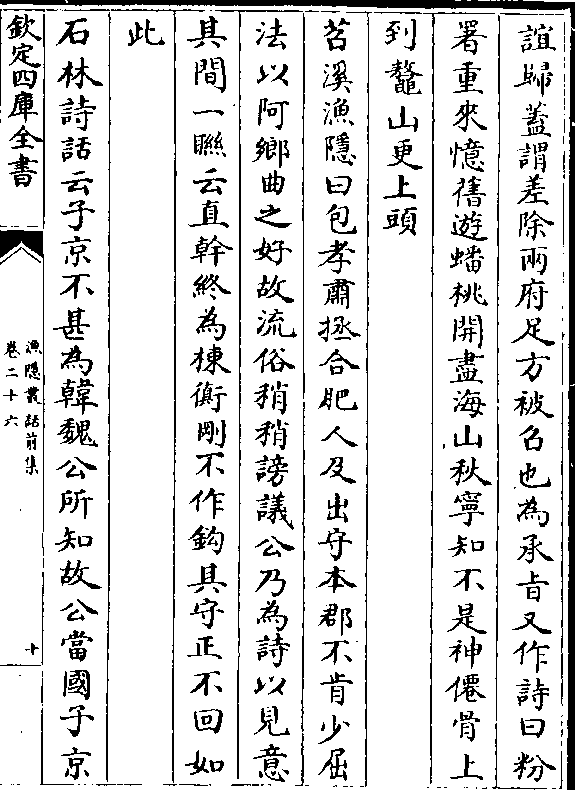 誼歸蓋謂差除兩府足方被召也為承旨又作詩曰粉
署重來憶舊遊蟠桃開盡海山秋寧知不是神僊骨上
到鼇山更上頭
苕溪漁隱曰包孝肅拯合肥人及出守本郡不肯少屈
法以阿鄉曲之好故流俗稍稍謗議公乃為詩以見意
其間一聯云直幹終為棟衡剛不作鈎其守正不回如
此
石林詩話云子京不甚為韓魏公所知故公當國子京
欽定四庫全書
漁隱叢話前集
卷二十六
十